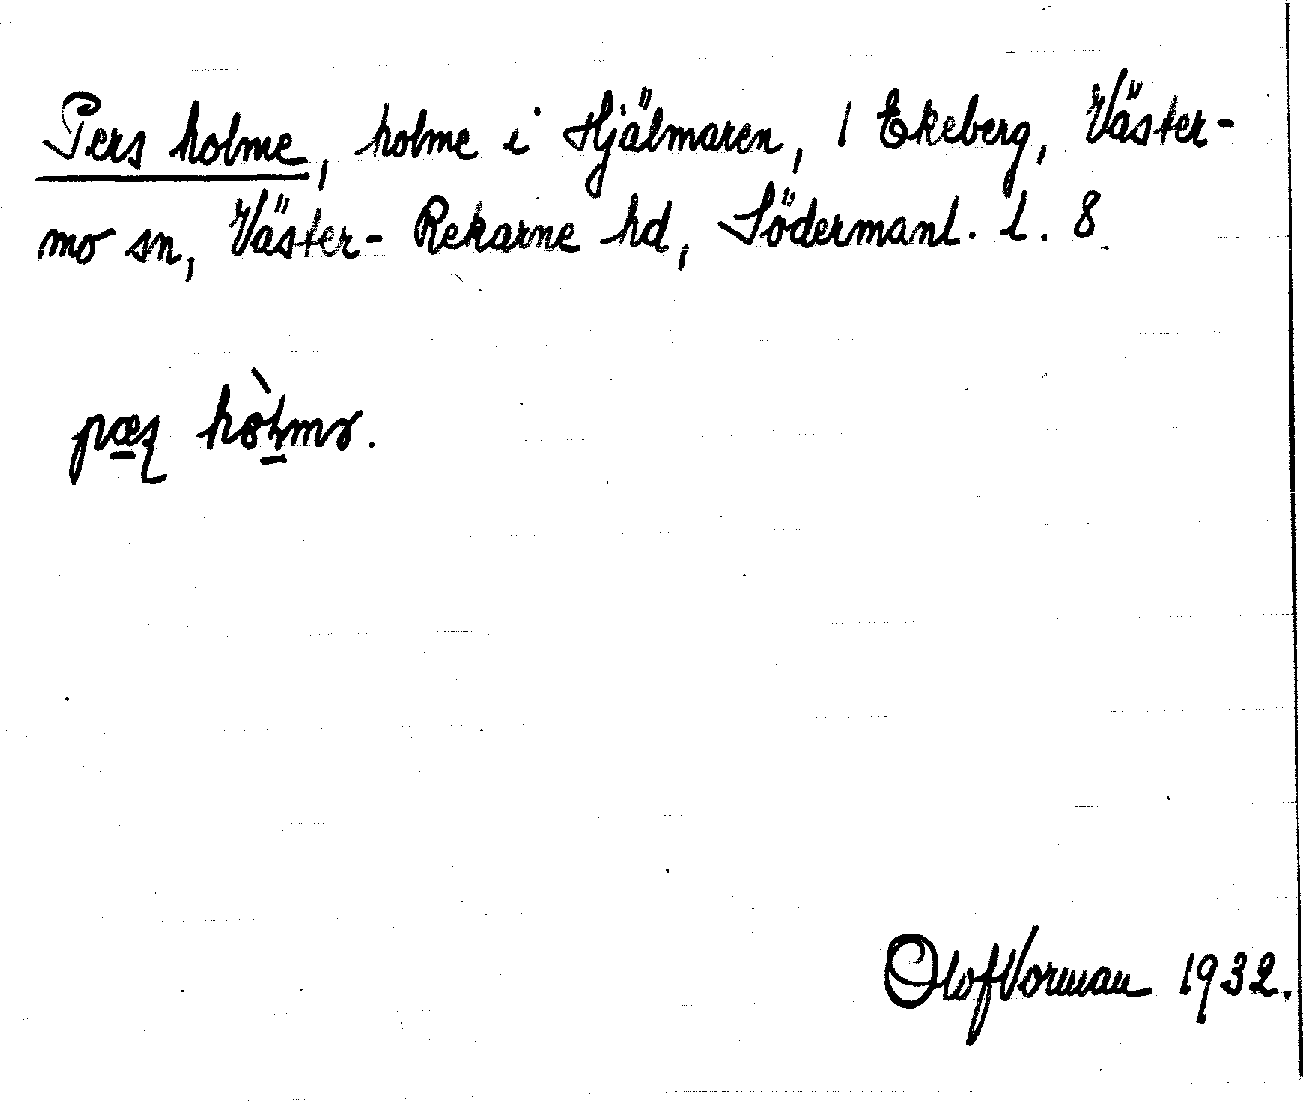 Pers holme, holme i Hjälmaren, 1 Ekeberg, Väster-
mo sn, Väster-Rekarne hd, Södermanl. l. 8
Olof Vorman 1932.